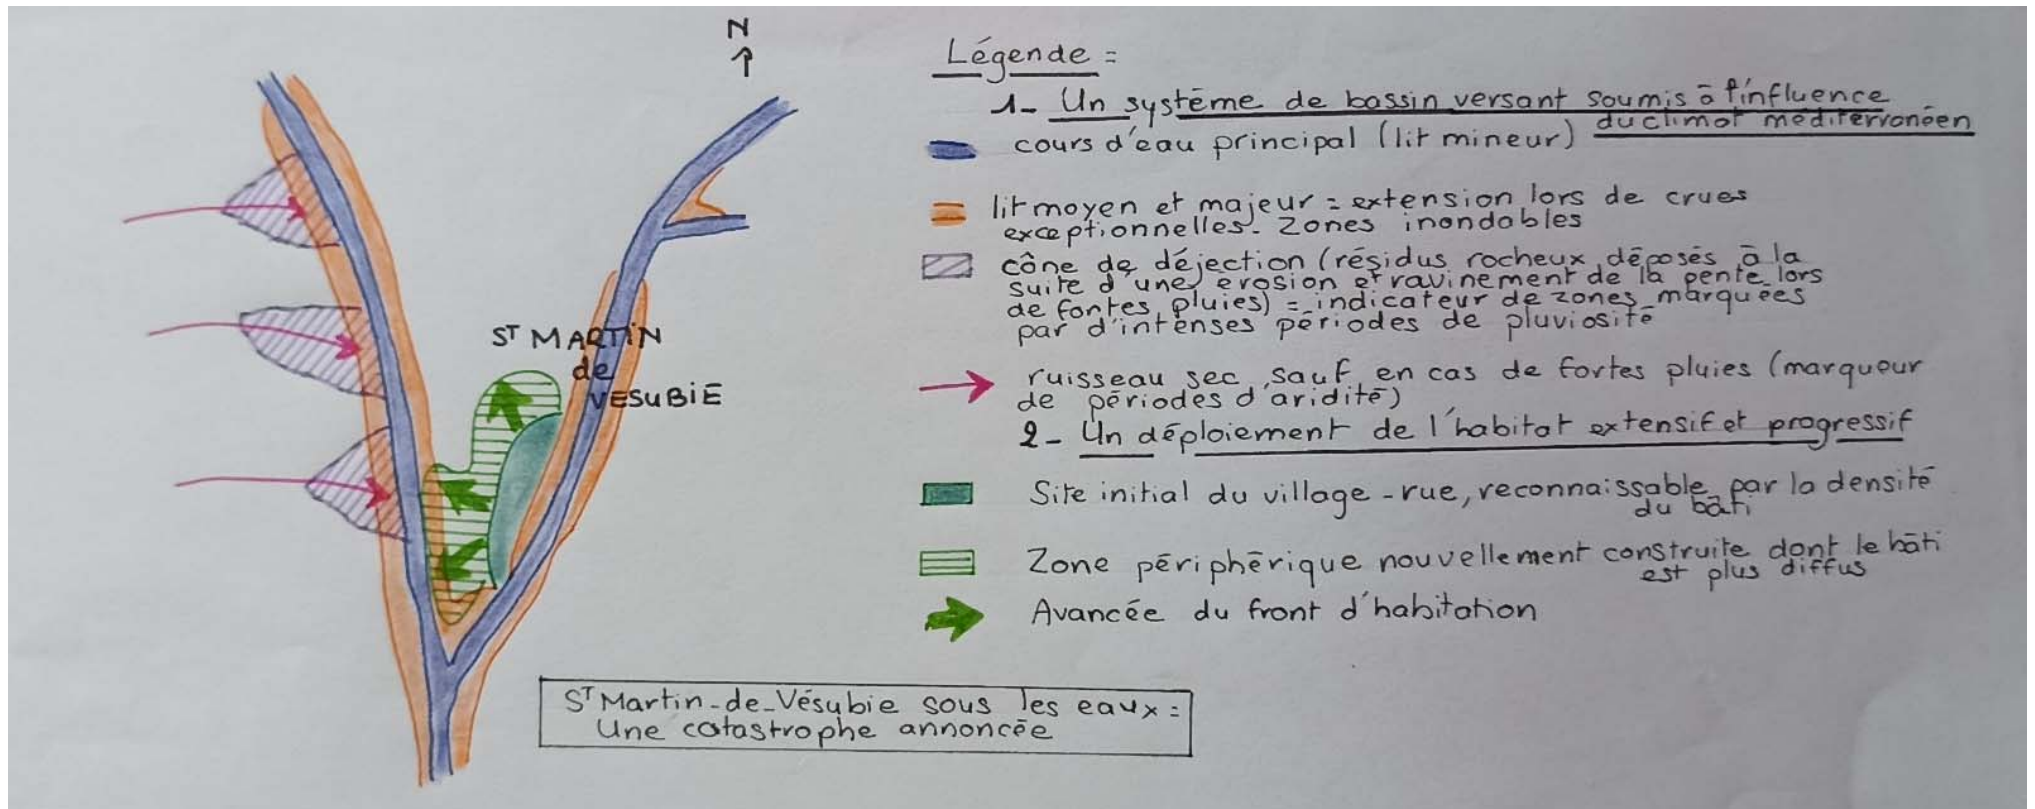 N
Légende =
1- Un système de bassin versant soumis à l'influence
du climat méditerranéen
cours d'eau principal (lit mineur)
lit moyen et majeur = extension lors de crues
exceptionnelles. Zones inondables
cône de déjection (résidus rocheux déposés à la
suite d'une érosion et ravinement de la pente lors
de fortes pluies) = indicateur de zones marquées
par d'intenses périodes de pluviosité
ruisseau sec, sauf en cas de fortes pluies (marqueur
de périodes d'aridité)
2- Un déploiement de l'habitat extensif et progressif
Site initial du village-rue, reconnaissable par la densité
du bâti
Zone périphérique nouvellement construite dont le bâti
est plus diffus
Avancée du front d'habitation
ST MARTIN
de
VESUBIE
ST Martin-de-Vésubie sous les eaux =
Une catastrophe annoncée